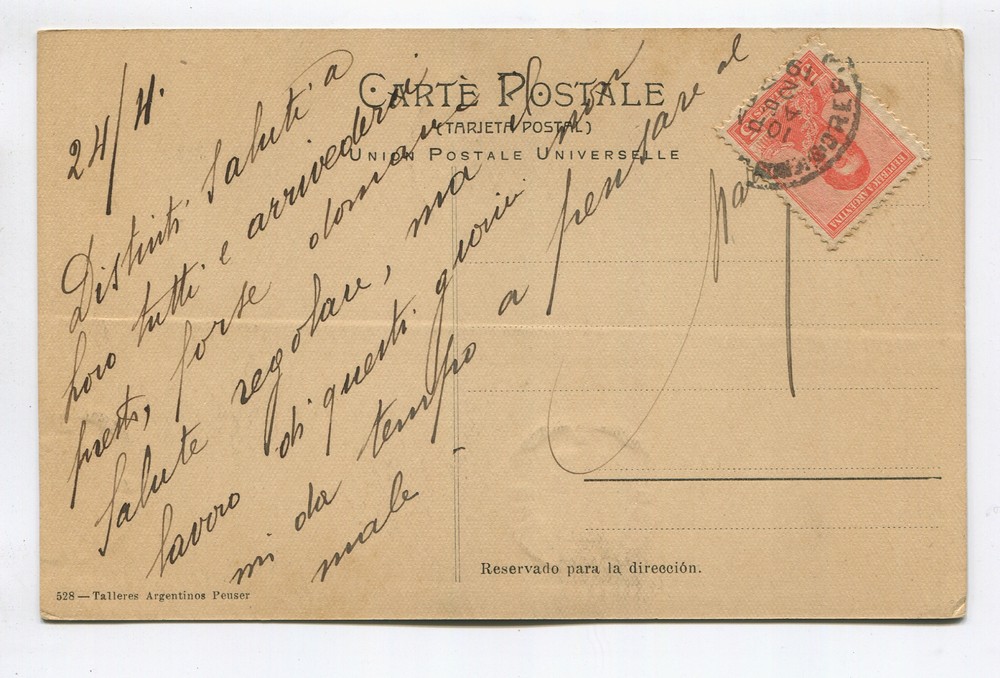 CARTE POSTALE
(TARJETA POSTAL)
UNION POSTALE UNIVERSELLE
24/4.
Distinti saluti a
loro tutti e arrivederci
presto, forse domani
Salute regolare, ma il mon
lavoro di questi giorni non
mi da tempo a pensare al
male
REPUBLICA ARGENTINA
Reservado para la dirección.
528 — Talleres Argentinos Peuser